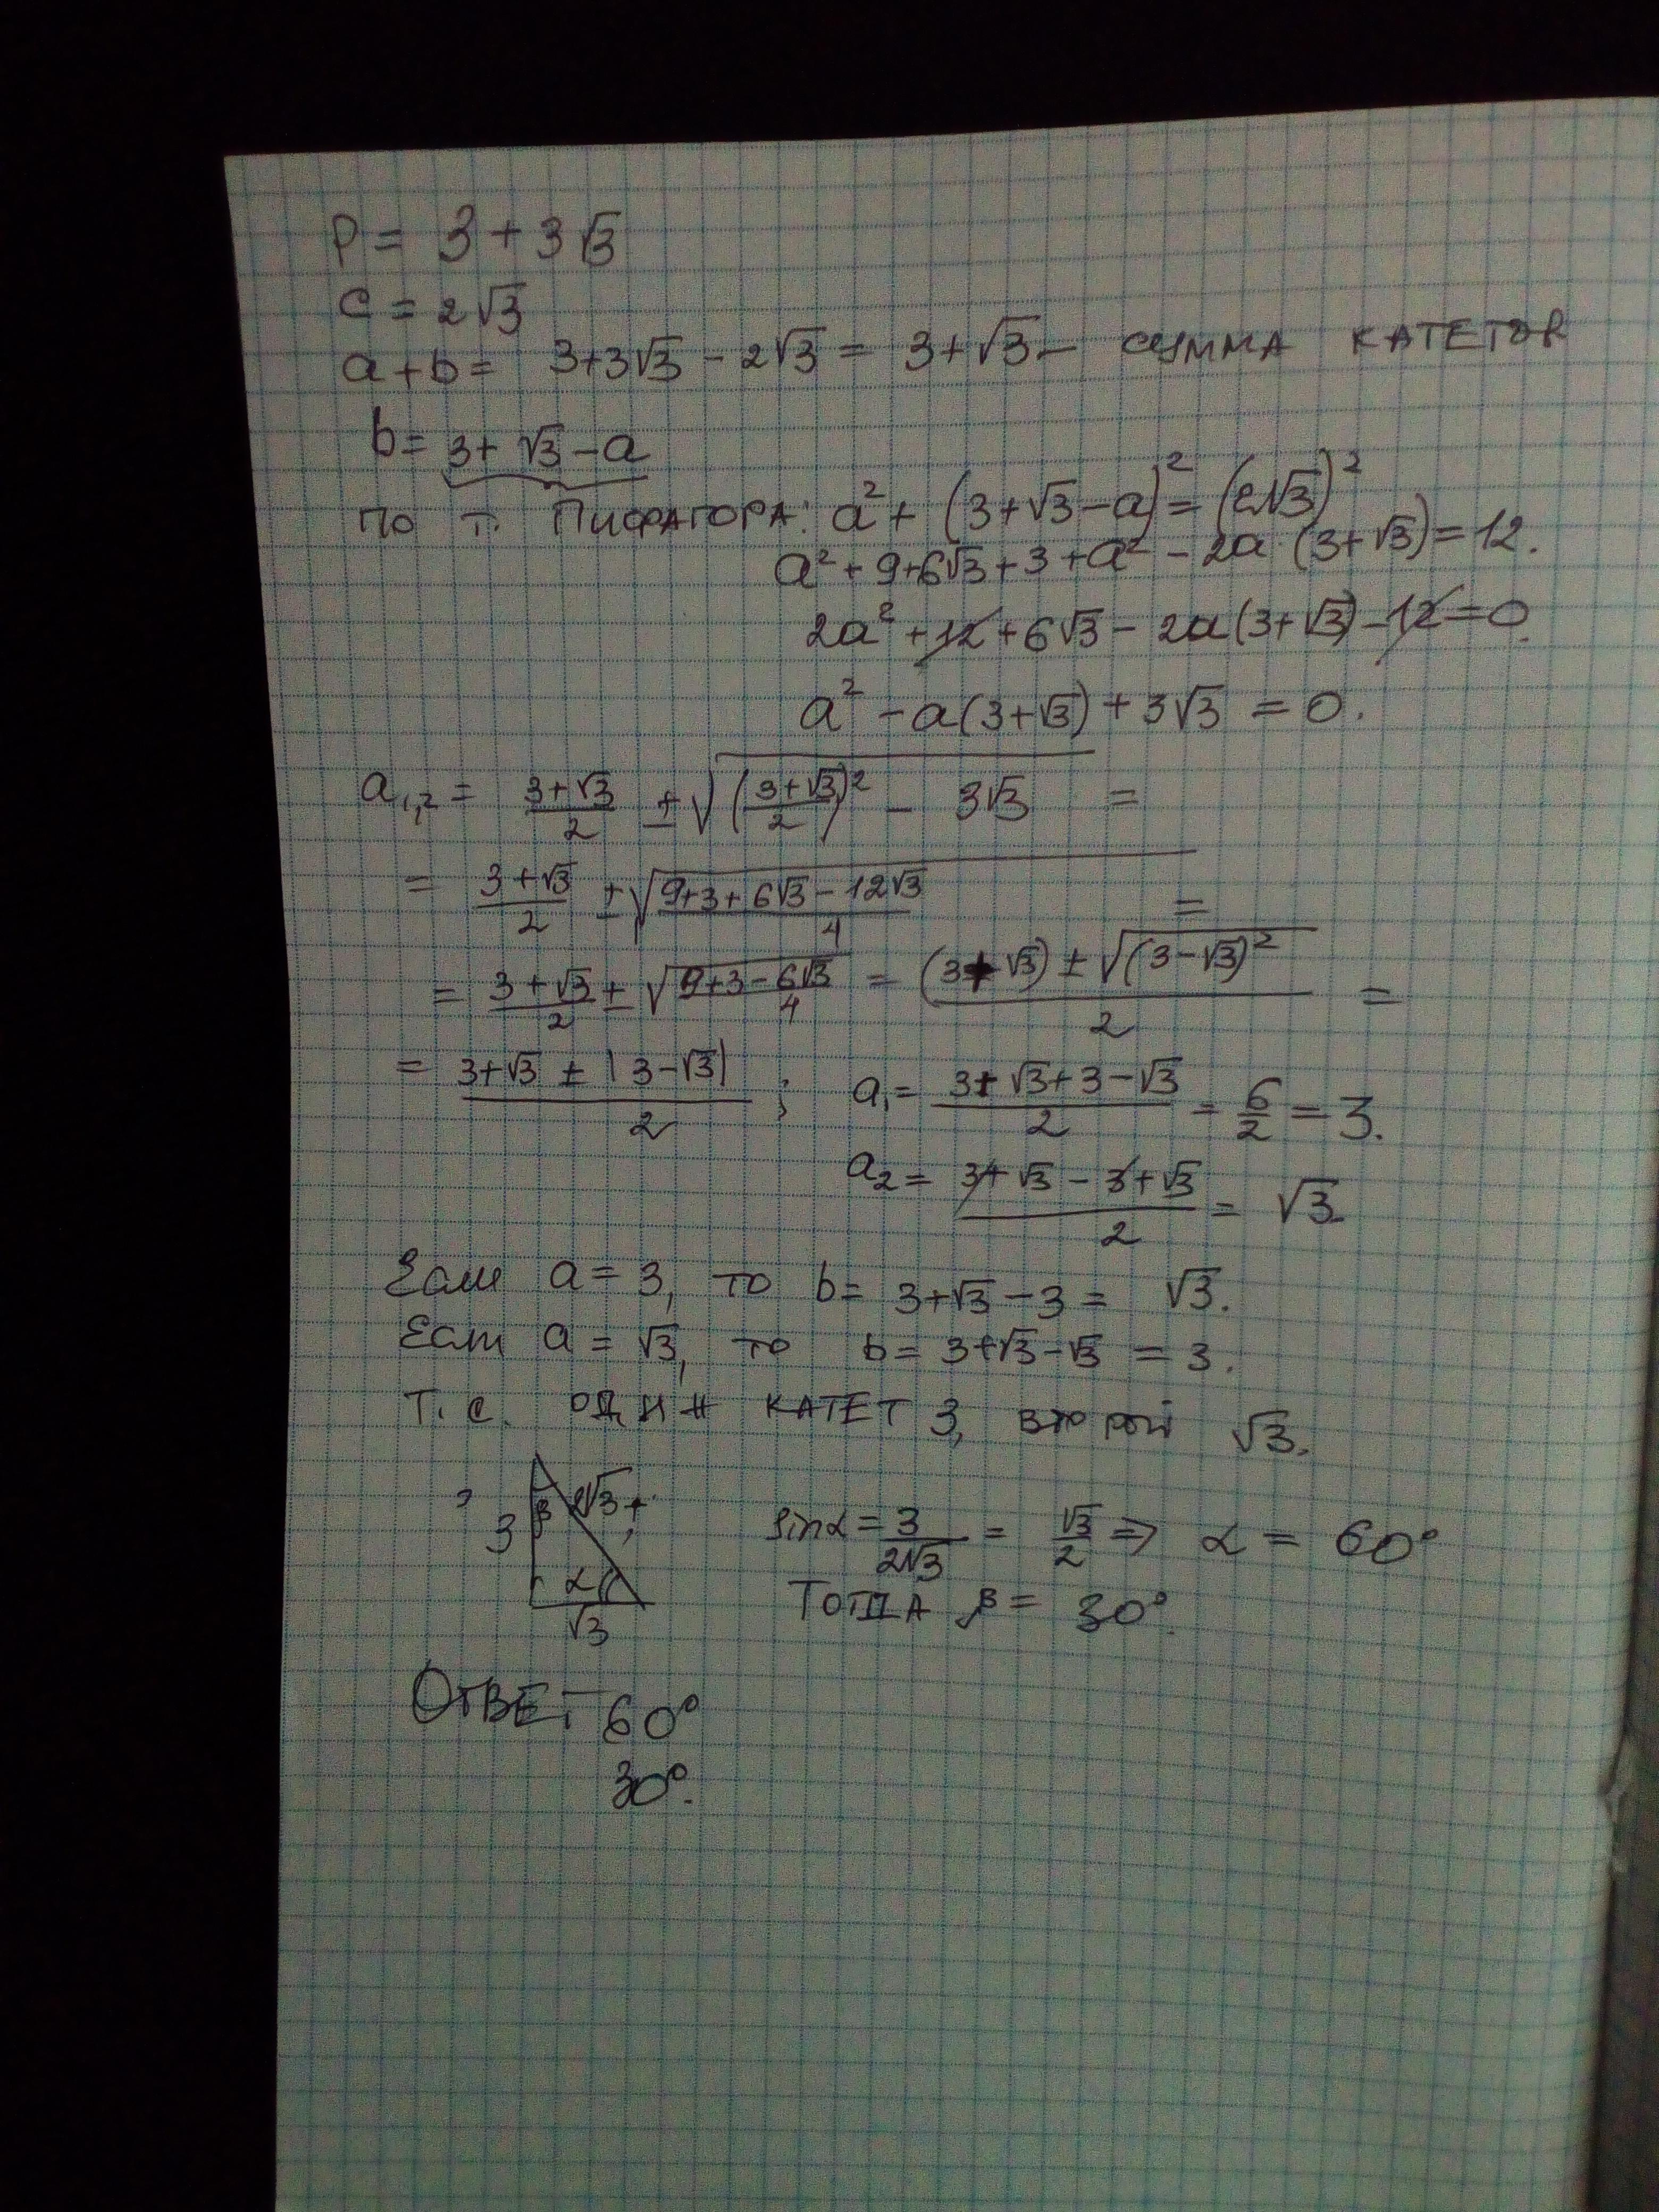 P = 3 + 3√3
c = 2√3
a + b = 3+3√3 - 2√3 = 3+√3 - сумма катетов
b = 3+ √3 - a
по т. Пифагора: a² + (3+√3-a)² = (2√3)²
a² + 9+6√3+3 + a² - 2a·(3+√3) = 12.
2a² + 12 + 6√3 - 2a(3+√3) - 12 = 0.
a² - a(3+√3) + 3√3 = 0.
a₁,₂ = (3+√3)/2 ± √(((3+√3)/2)² - 3√3) =
= (3+√3)/2 ± √((9+3+6√3-12√3)/4) =
= (3+√3)/2 ± √((9+3-6√3)/4) = ((3+√3) ± √((3-√3)²))/2 =
= (3+√3 ± |3-√3|)/2 ; a₁ = (3+√3+3-√3)/2 = 6/2 = 3.
a₂ = (3+√3-3+√3)/2 = √3.
Если a = 3, то b = 3+√3-3 = √3.
Если a = √3, то b = 3+√3-√3 = 3.
Т.е. один катет 3, второй √3.
3 β 2√3
α
√3
sinα = 3/(2√3) = √3/2 ⇒ α = 60°
Тогда β = 30°.
Ответ 60°
30°.